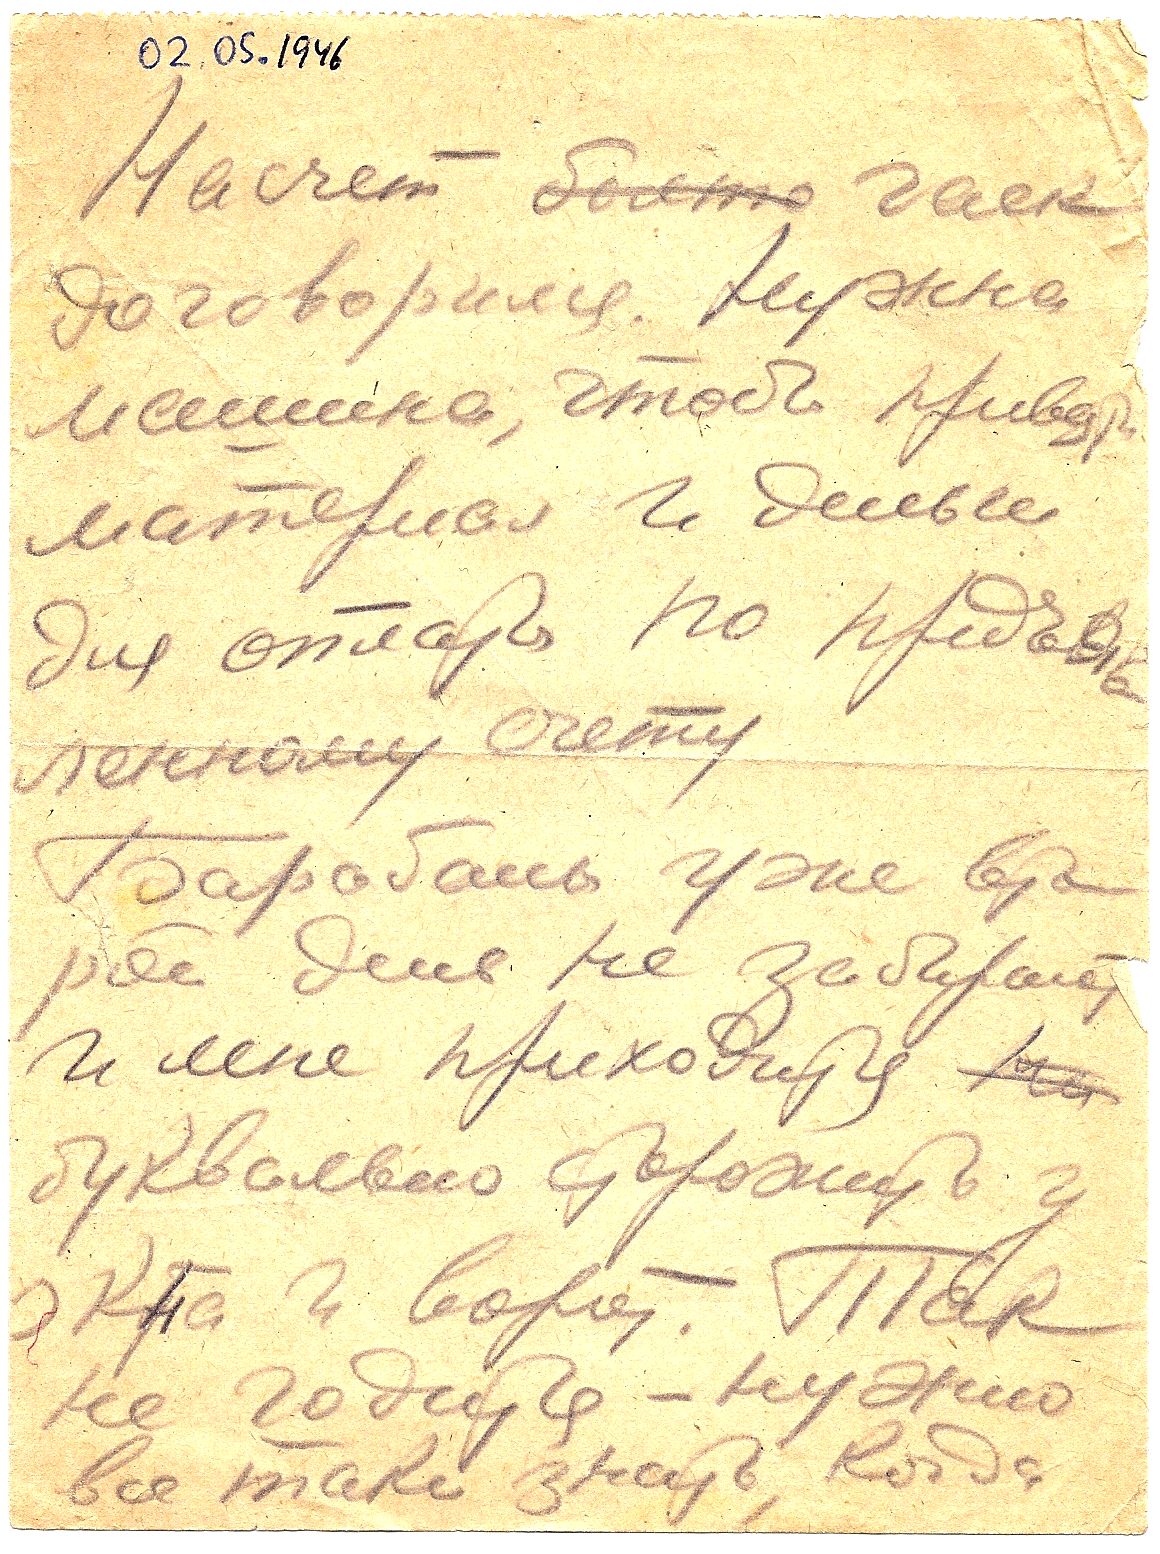 02.05.1946
Насчет болто гаек
договорился. Нужна
машина, чтобы привезти
материал и деньги
для оплаты по
ленному счету
Барабаны уже вто
рой день не забирают
и мне приходится на
буквально сторожить у
окна и ворот. Так
не годится – нужно
все таки знать, когда